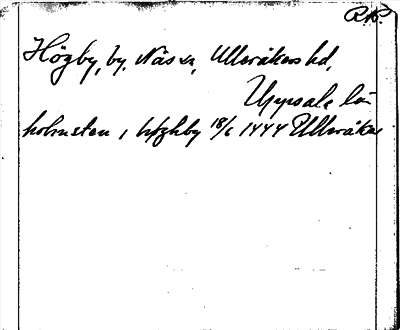 R.P.
Högby, by, Näs sn, Ulleråkers hd,
Uppsala län
holmsten i høghby 18/6 1444 Ulleråker